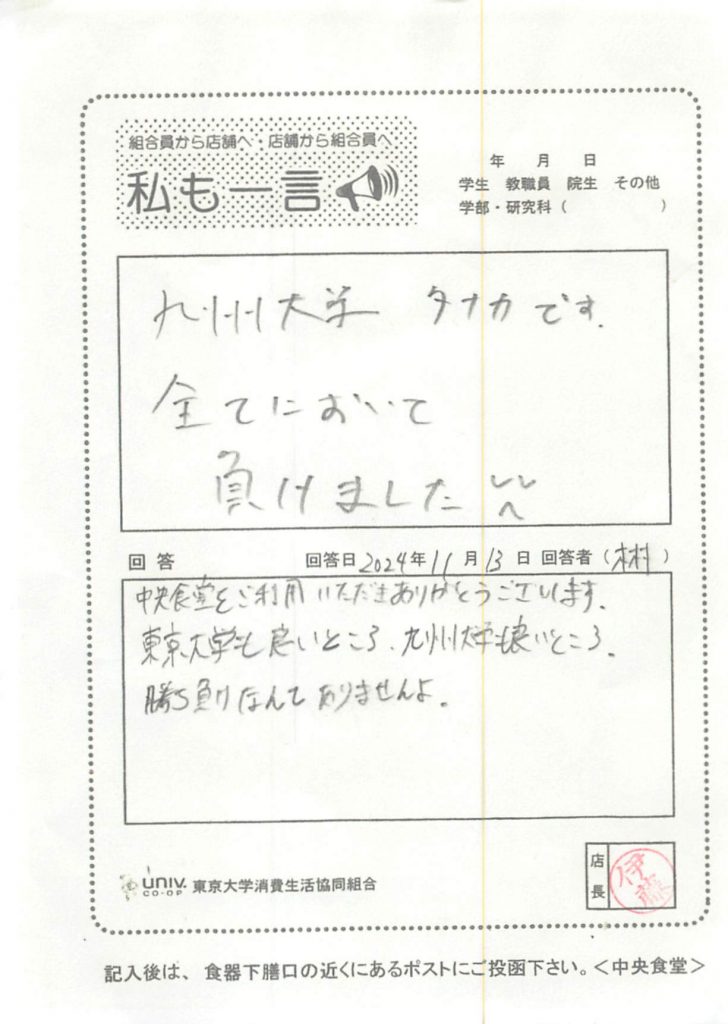 組合員から店舗へ・店舗から組合員へ
私も一言
年 月 日
学生 教職員 院生 その他
学部・研究科（ ）
九州大学 タナカです.
全てにおいて
負けました
回答 回答日 2024年 11月 13日 回答者（ ）
中央食堂をご利用いただきありがとうございます.
東京大学も良いところ、九州大学も良いところ。
勝ち負けなんてありませんよ。
店長
伊藤
univ. CO-OP 東京大学消費生活協同組合
記入後は、食器下膳口の近くにあるポストにご投函下さい。＜中央食堂＞